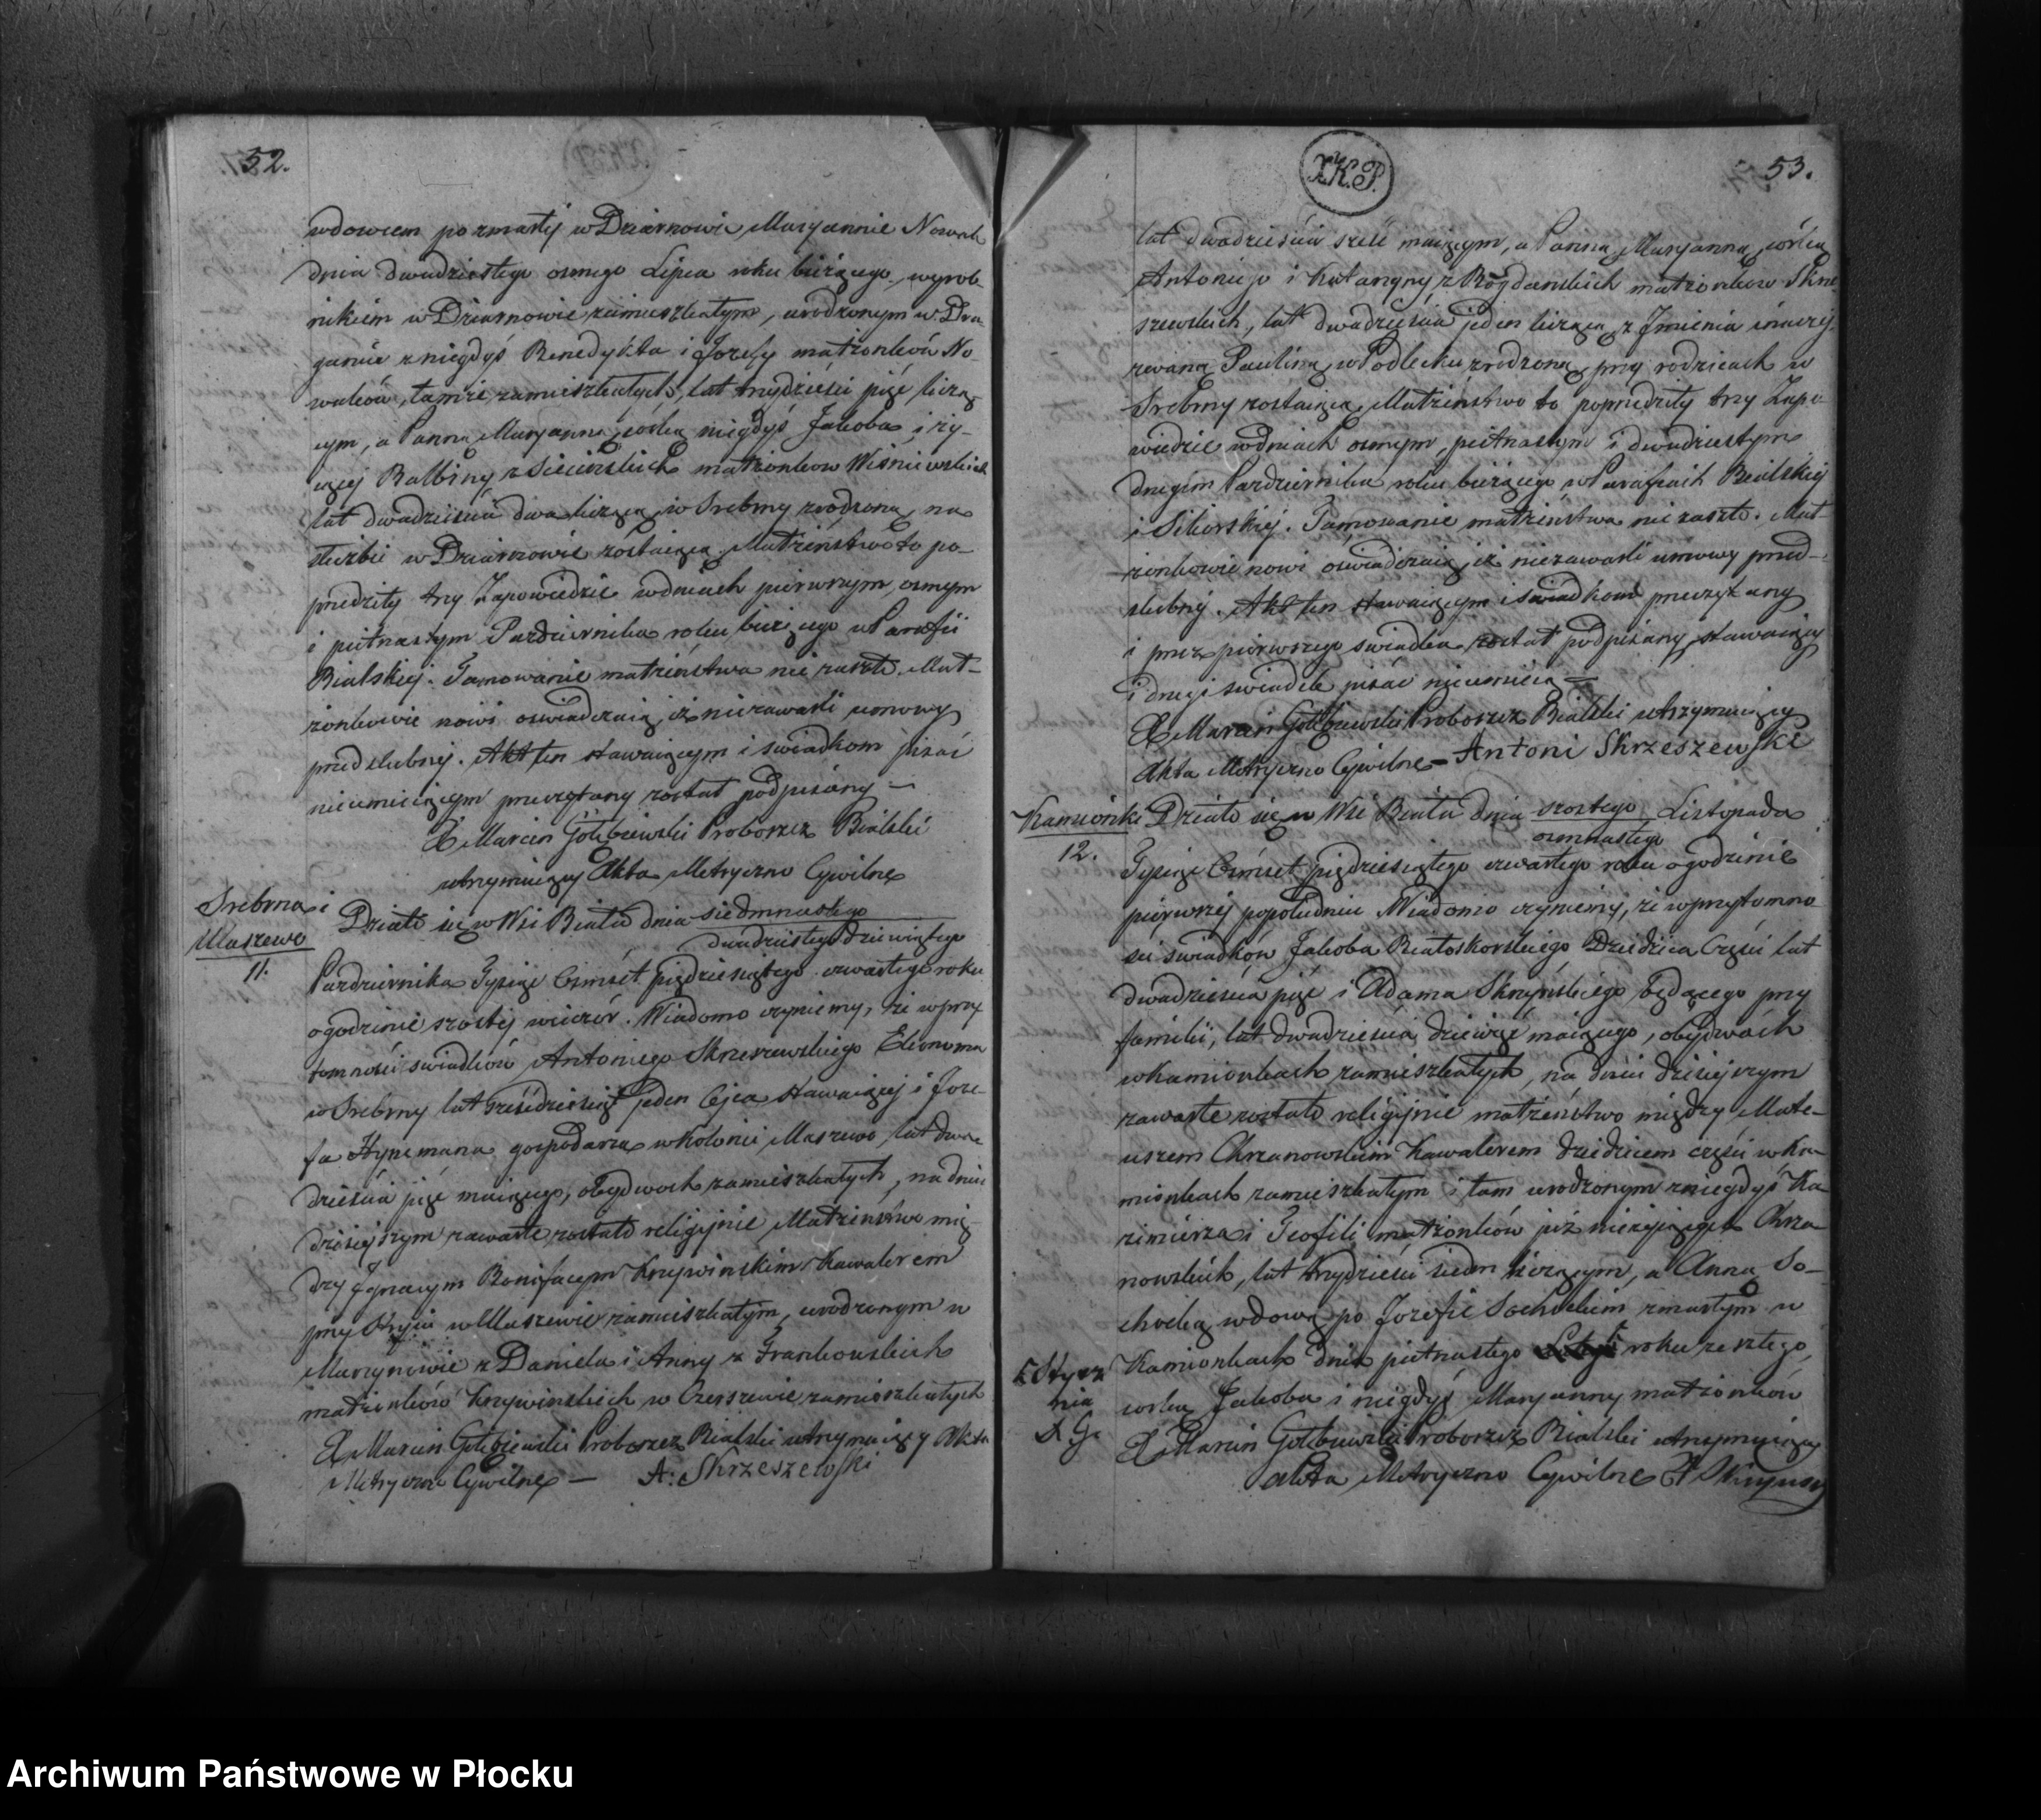 52.
wdowcem po zmarłej w Dziarnowie Maryannie Nowak
dnia dwudziestego osmego Lipca roku bieżącego, wyrob-
nikiem w Dziarnowie zamieszkałym, urodzonym w Dra-
ganie z niegdyś Benedykta i Jozefy małżonków No-
waków, tamże zamieszkałych, lat trzydzieści pięć licząc-
cym, a Panną Maryanną, córką niegdyś Jakoba i ży-
iącej Balbiny z Siecińskich małżonkow Wiśniewskich
lat dwadzieścia dwa licząca, w Srebrny zrodzoną, na
służbie w Dziarnowie zostaiącą. Małżeństwo to po-
przedziły trzy Zapowiedzie w dniach pierwszym, osmym
i piętnastym Pazdziernika roku bieżącego w Parafii
Bialskiej. Tamowanie małżeństwa nie zaszło. Mał-
żonkowie nowi oswiadczaią, iż nie zawarli umowy
przedslubnej. Akt ten stawaiącym i swiadkom pisać
nieumieiącym przeczytany został podpisany —
X Marcin Gołębiewski Proboszcz Bialski
utrzymuiący Akta Metryczno Cywilne
Srebrna i
Maszewo
11.
Działo się w Wsi Biała dnia siedmnastego
dwudziestego dziewiątego
Pazdziernika Tysiąc Ośmset pięćdziesiątego czwartego roku
o godzinie szostej wieczór. Wiadomo czyniemy, że w przy
tomności swiadków Antoniego Skrzeszewskiego Ekonoma
w Srebrny lat sześćdziesiąt jeden Ojca stawaiącej i Joze-
fa Hynemana gospodarza w Kolonii Maszewo lat dwa-
dzieścia pięć maiącego, obydwóch zamieszkałych, na dniu
dzisiejszym zawarte zostało religijnie Małżeństwo mię-
dzy Ignacym Bonifacym Krzywinskim Kawalerem
przy Stryiu w Maszewie zamieszkałym, urodzonym w
Murzynowie z Daniela i Anny z Frankowskich
małżonków Krzywinskich w Czerszewie zamieszkałych
X Marcin Gołębiewski Proboszcz Bialski utrzymuiący Akta
Metryczno Cywilne — A: Skrzeszewski
X.K.P.
53.
lat dwadzieścia sześć maiącym, a Panną Maryanną, córką
Antoniego i Katarzyny z Bogdanskich małżonkow Skrze-
szewskich, lat dwadzieścia jeden licząca, z Imienia inaczej
zwaną Pauliną, w Podlecku zrodzoną, przy rodzicach w
Srebrny zostaiącą. Małżeństwo to poprzedziły trzy Zapo-
wiedzie w dniach osmym, piętnastym i dwudziestym
drugim Pazdziernika roku bieżącego w Parafiach Bialskiej
i Sikorskiej. Tamowanie małżeństwa nie zaszło. Mał-
żonkowie nowi oświadczaią, iż nie zawarli umowy przed-
slubnej. Akt ten stawaiącym i świadkom przeczytany
i przez pierwszego swiadka został podpisany, stawaiący
i drugi swiadek pisać nieumieią —
X Marcin Gołębiewski Proboszcz Bialski utrzymuiący
Akta Metryczno Cywilne — Antoni Skrzeszewski
Kamionki
12.
Działo się w Wsi Biała dnia szostego Listopada
osmnastego
Tysiąc Ośmset pięćdziesiątego czwartego roku o godzinie
pierwszej popołudniu Wiadomo czyniemy, że w przytomno
ści swiadków Jakoba Białoskorskiego Dziedzica Części lat
dwadzieścia pięć i Adama Skrzyńskiego będącego przy
familii, lat dwadzieścia dziewięć maiącego, obydwóch
w Kamionkach zamieszkałych, na dniu dzisiejszym
zawarte zostało religijnie małżeństwo między Mate-
uszem Chrzanowskim Kawalerem dziedzicem części w Ka-
mionkach zamieszkałym i tam urodzonym z niegdyś Ka-
zimierza i Teofili małżonków już nieżyiących Chrza-
nowskich, lat trzydzieści siedm liczącym, a Anną So-
chocką wdową po Jozefie Sochockim zmarłym w
Kamionkach dnia piętnastego roku zeszłego,
córką Jakoba i niegdyś Maryanny małżonków
Stycz
nia
X. G.
X Marcin Gołębiewski Proboszcz Bialski utrzymuiący
Akta Metryczno Cywilne
Archiwum Państwowe w Płocku